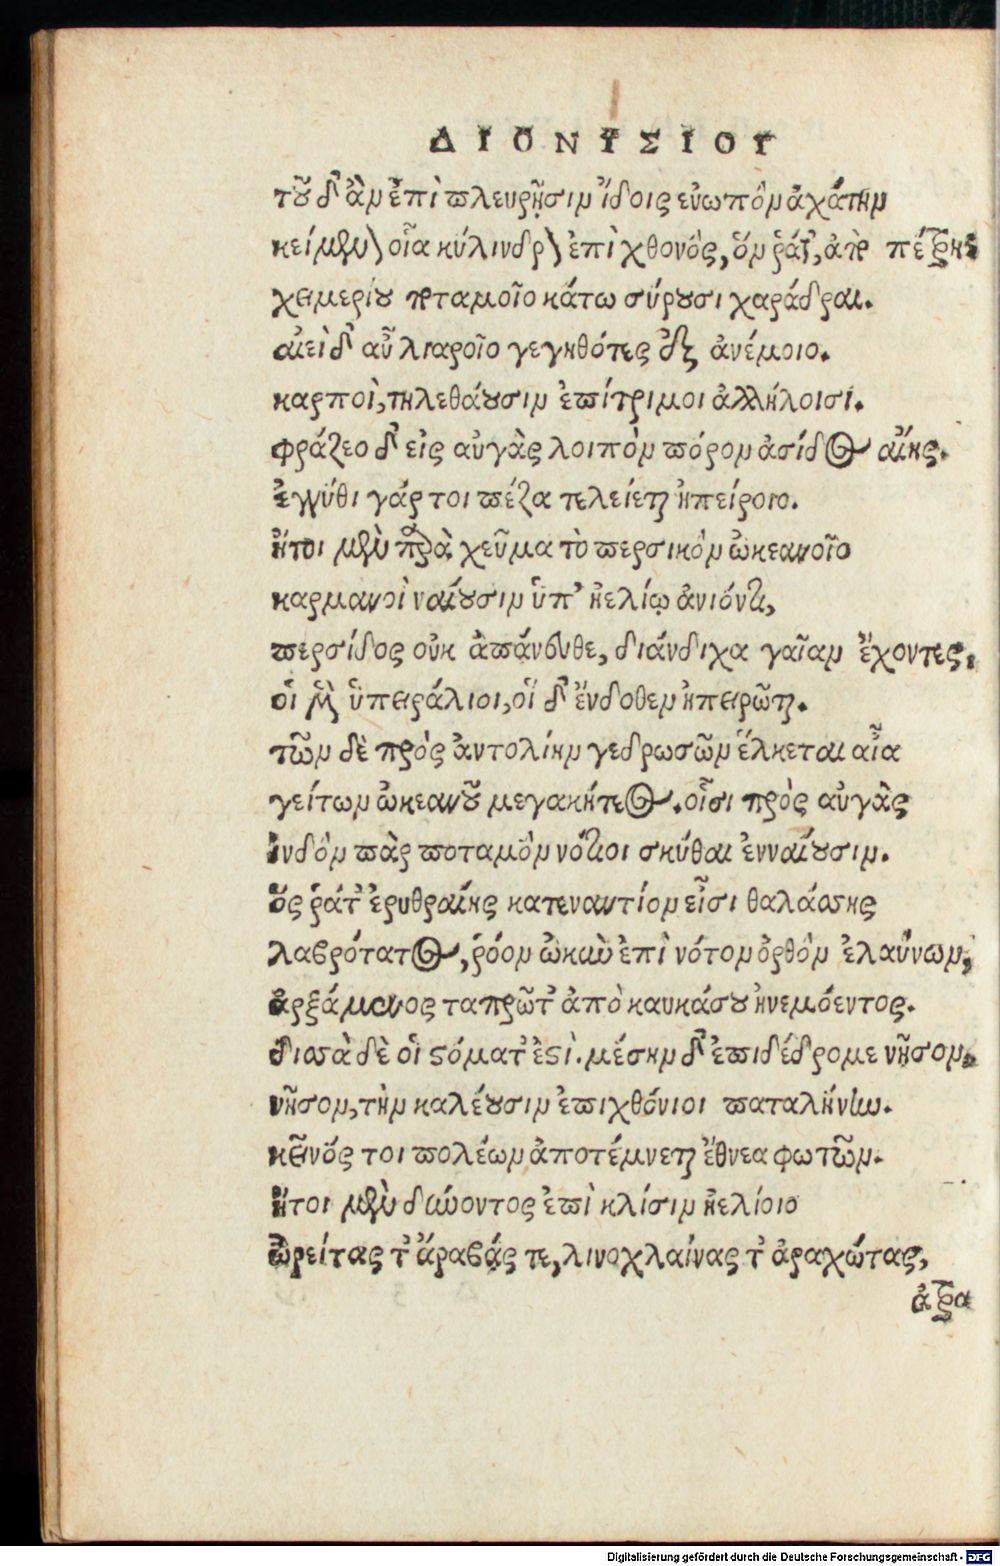 ΔΙΟΝΥΣΙΟΥ
τοῦ δ' ἂν ἐπὶ πλευρῇσιν ἴδοις εὐωπὸν ἀχάτην
κείμενον οἷα κύλινδρον ἐπὶ χθονός, ὅν ῥά τ' ἀπὸ πέτρης
χειμερίου ποταμοῖο κάτω σύρουσι χαράδραι.
αἰεὶ δ' αὖ λιαροῖο γεγηθότες ἐξ ἀνέμοιο.
καρποὶ, τηλεθάουσιν ἐπίτριμοι ἀλλήλοισι.
φράζεο δ' εἰς αὐγὰς λοιπὸν πόρον ἀσίδος αἴης.
ἐγγύθι γάρ τοι πέζα τελείεται ἠπείροιο.
ἤτοι μὲν παρὰ χεῦμα τὸ περσικὸν ὠκεανοῖο
καρμανοὶ ναίουσιν ὑπ' ἠελίῳ ἀνιόντι,
περσίδος οὐκ ἀπάνευθε, διάνδιχα γαῖαν ἔχοντες,
οἱ μὲν ὑπειράλιοι, οἵ δ' ἔνδοθεν ἠπειρῶται.
τῶν δὲ πρὸς ἀντολίην γεδρωσῶν ἕλκεται αἶα
γείτων ὠκεανοῦ μεγακήτεος. οἷσι πρὸς αὐγὰς
ἰνδὸν πὰρ ποταμὸν νότιοι σκύθαι ἐνναίουσιν.
ὅς ῥά τ' ἐρυθραίης κατεναντίον εἶσι θαλάσσης
λαβρότατος, ῥόον ὠκὺν ἐπὶ νότον ὀρθὸν ἐλαύνων,
ἀρξάμενος ταπρῶτ' ἀπὸ καυκάσου ἠνεμόεντος.
δισσὰ δὲ οἱ στόματ' ἐστὶ. μέσην δ' ἐπιδέδρομε νῆσον,
νῆσον, τὴν καλέουσιν ἐπιχθόνιοι παταλήνην.
κεῖνός τοι πολέων ἀποτέμνεται ἔθνεα φωτῶν.
ἤτοι μὲν δύνοντος ἐπὶ κλίσιν ἠελίοιο
ὠρείτας τ' ἄραβάς τε, λινοχλαίνας τ' ἀραχώτας,
ἀτρα
Digitalisierung gefördert durch die Deutsche Forschungsgemeinschaft - DFG